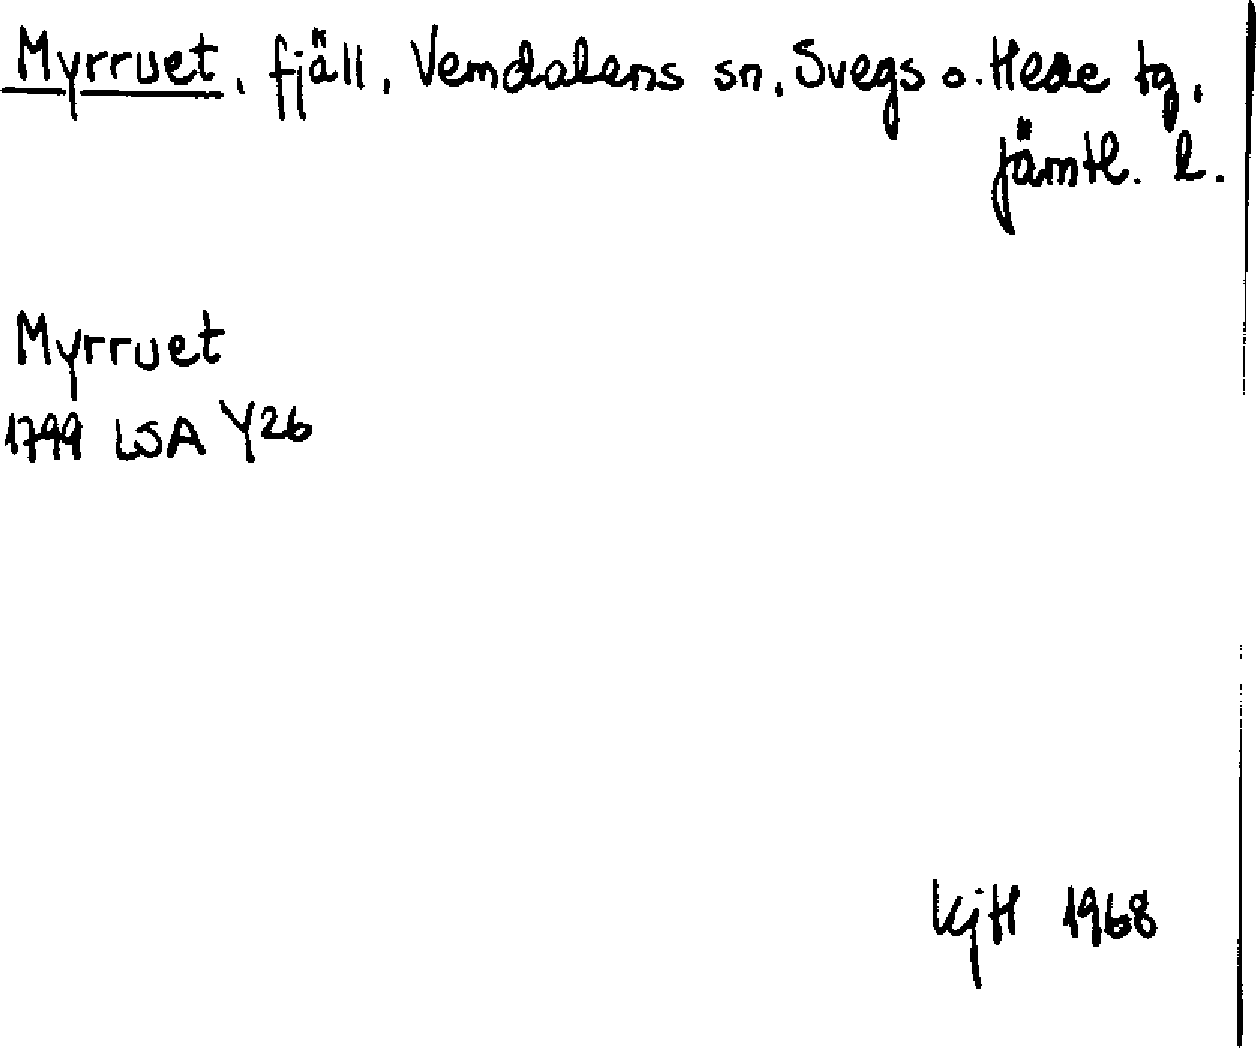 Myrruet, fjäll, Vemdalens sn, Svegs o. Hede tg,
Jämtl. l.
Myrruet
1799 LSA Y26
KjH 1968